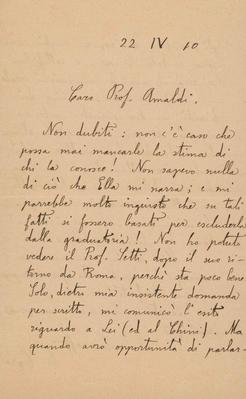 22 IV 10
Caro Prof. Amaldi,
Non dubiti: non c'è caso che
possa mai mancarle la stima di
chi la conosce! Non sapevo nulla
di ciò che Ella mi narra; e mi
parrebbe molto ingiusto che su tali
fatti si fossero basati per escluderla
dalla graduatoria! Non ho potuto
vedere il Prof. Setti, dopo il suo ri-
torno da Roma, perchè sta poco bene
Solo, dietro mia insistente domanda
per scritto, mi comunicò l'esito
riguardo a Lei (ed al Chini). Ma
quando avrò opportunità di parlar-